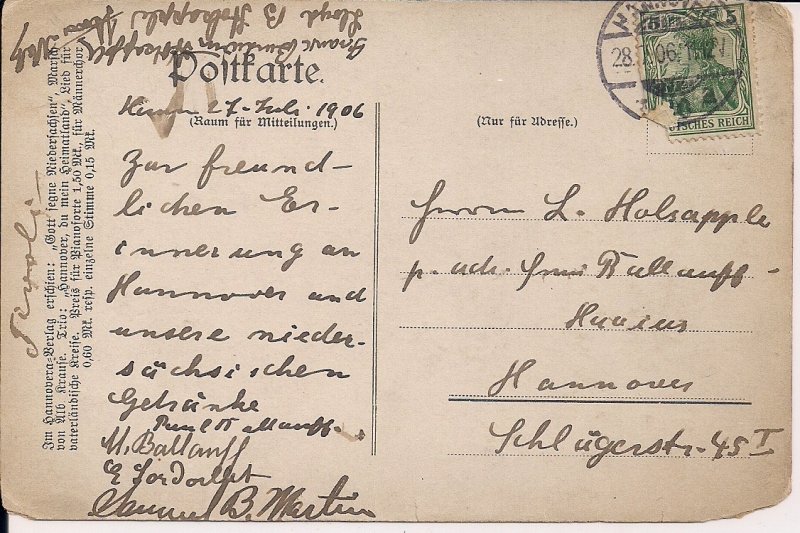 Postkarte.
27. Juli. 1906
(Raum für Mitteilungen.)
Zur freund-
lichen Er-
innerung an
Hannover und
unsere nieder-
sächsischen
Getränke
Paul Ballauff.
M. Ballauff
Samuel B. Martin
(Nur für Adresse.)
Herrn L. Holsapple
p. adr. Ballauff-
Hannover
Schlägerstr. 45 I
HANNOVER
28.
06. 11-12V
5 5
DEUTSCHES REICH
Lloyd B Holsapple
Holsapple
Tivoli
Im Hannovera-Verlag erschien: „Gott segne Niedersachsen“, Marsch
von Alb. Krause. Trio: „Hannover, du mein Heimatland“, Lied für
vaterländische Kreise. Preis für Pianoforte 1,50 Mk., für Männerchor
0,60 Mk. resp. einzelne Stimme 0,15 Mk.